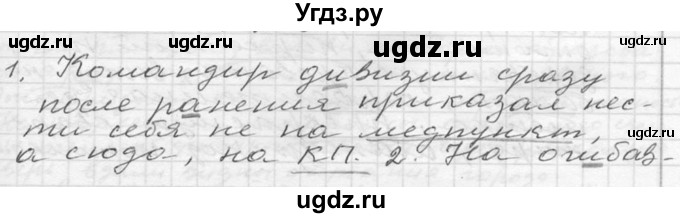 Угдз.ру
ugdz.ru ugdz.ru ugdz.ru
1. Командир дивизии сразу
после ранения приказал нес-
ти себя не на медпункт,
а сюда, на КП. 2. На огибав-
ugdz.ru ugdz.ru